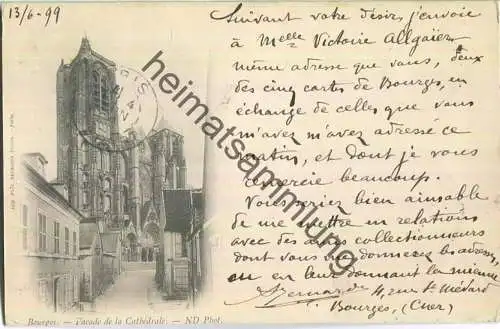 13/6-99
Suivant votre désir, j'envoie
à Melle Victoire Allgaier
même adresse que vous, deux
des cinq cartes de Bourges, en
échange de celles que vous
m'avez m'avez adressée ce
matin, et dont je vous
remercie beaucoup.
Vous seriez bien aimable
de me mettre en relations
avec des autres collectionneurs
dont vous me donnerez les adresses
ou en leur donnant la mienne
Bernard 4, rue St Médard
Bourges, (Cher)
PARIS
Bourges. — Façade de la Cathédrale. — ND Phot.
heimatsammlung.de